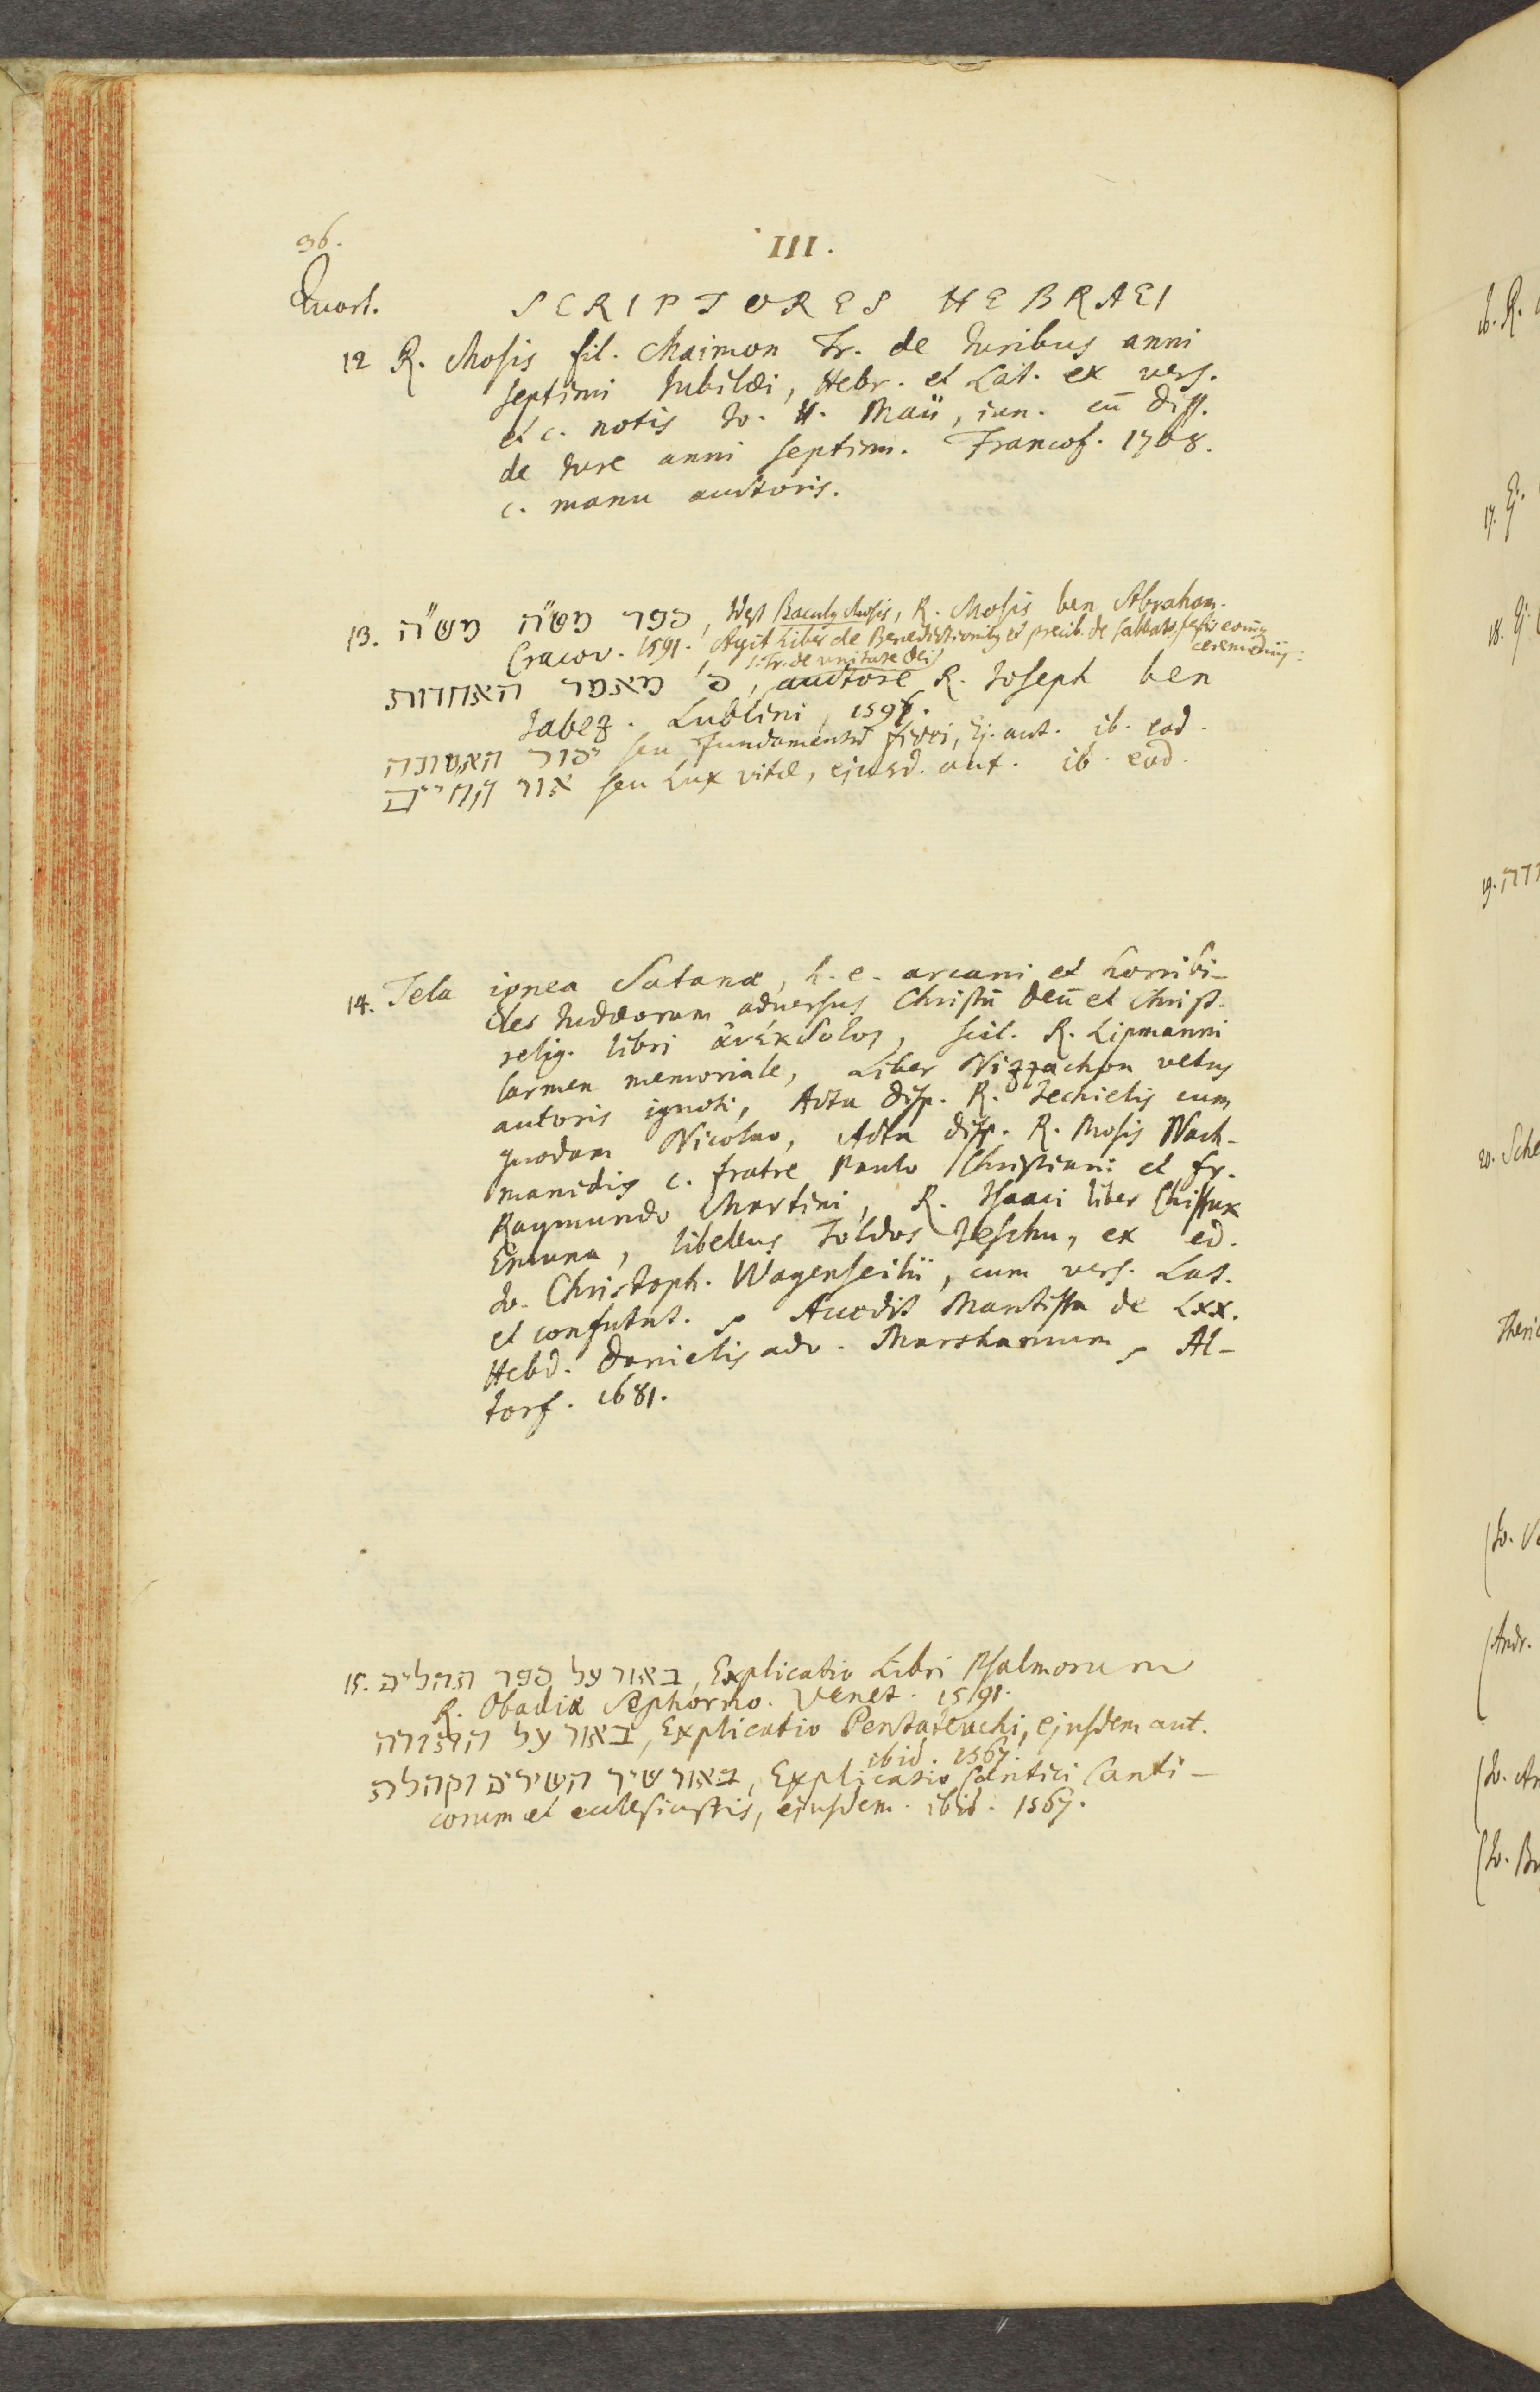 36.
III.
Quart.
SCRIPTORES HEBRAEI
12 R. Mosis fil. Maimon Tr. de Iuribus anni
septimi Iubilæi, Hebr. et Lat. ex vers.
et c. notis Io. H. Maii, iun. cū diss.
de Iure anni septim. Francof. 1708.
c. manu auctoris.
13. ספר מט״ה מש״ה, Baculus Mosis, R. Mosis ben Abraham.
Cracov. 1591. Agit Liber de Benedictionibus et precib. de sabbato, festis
ceremoniis.
s. Tr. de unitate Dei
ס' מאמר האחדות, auctore R. Joseph ben
Jabez. Lublini, 1597.
יסוד האמונה seu Fundamentū fidei, Ej. aut. ib. eod.
אור החיים seu Lux vitæ, ejusd. aut. ib. eod.
14. Tela ignea Satanæ, h.e. arcani et horribi-
les Iudæorum adversus Christū Deū et Christ.
relig. libri ἀνέκδοτοι, scil. R. Lipmanni
Carmen memoriale, Liber Nizzachon vetus
autoris ignoti, Acta disp. R. Jechielis cum
quodam Nicolao, Acta disp. R. Mosis Nach-
manidis c. fratre Paulo Christiani et fr.
Raymundo Martini, R. Isaaci liber Chissuk
Emuna, libellus Toldos Jeschu, ex ed.
Io. Christoph. Wagenseilii, cum vers. Lat.
et confutat. Accedit Mantissa de LXX.
Hebd. Danielis adv. Marshamum, Al-
torf. 1681.
15. באור על ספר תהלים, Explicatio Libri Psalmorum
R. Obadiæ Sephorno. Venet. 1591.
באור על התורה, Explicatio Pentateuchi, ejusdem aut.
ibid. 1567.
באור שיר השירים וקהלת, Explicatio Cantici Canti-
corum et ecclesiastis, ejusdem. ibid. 1567.
16. R.
17. Ej.
18. Ej.
19.
20. Sche
(Io.
(Andr.
(Io. An
(Io.